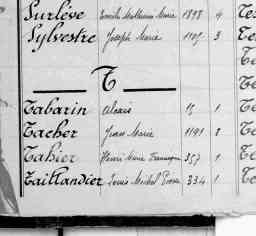 Surlève Emile Mathurin Marie 1898 4
Sylvestre Joseph Marie 1105 3
T
Tabarin Alexis 15 1
Tacher Jean Marie 1191 2
Tahier Henri Marie François 357 1
Taillandier Louis Michel 334 1